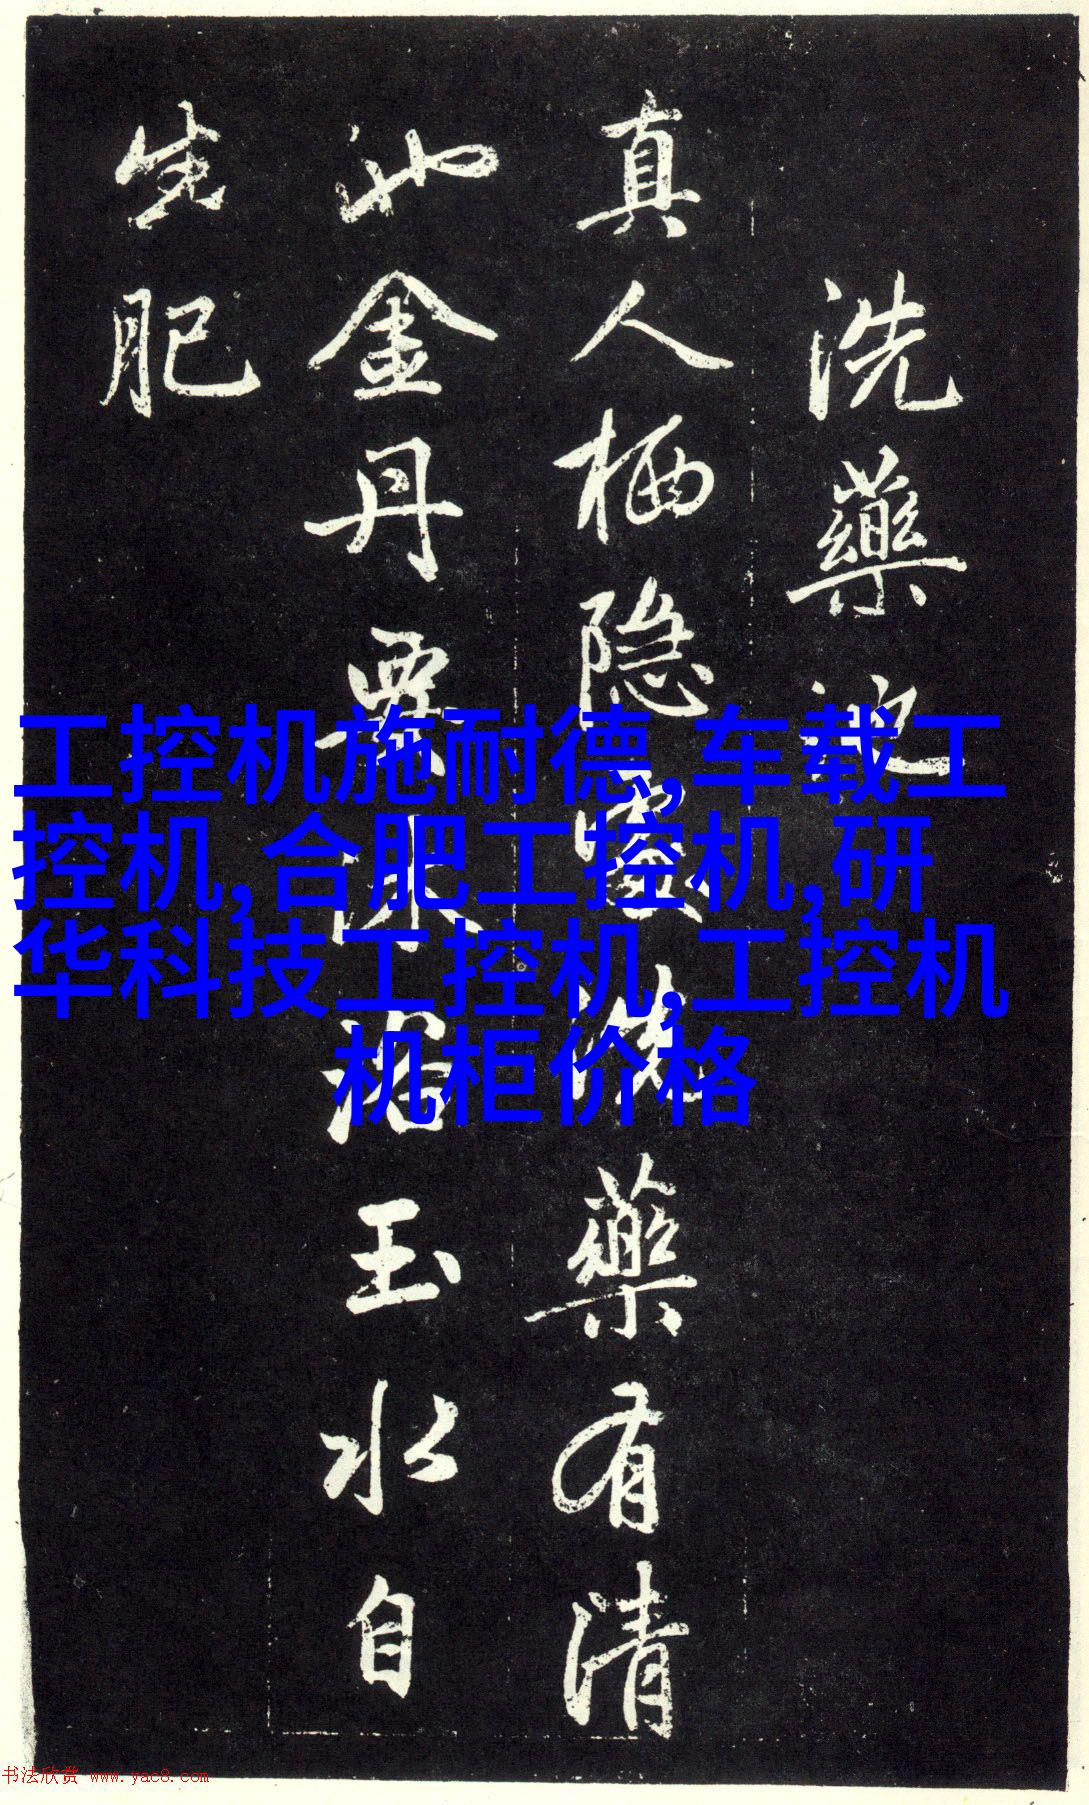 洗藥池
真人栖隐處洗藥有清
池金丹要沐浴玉水自
生肥
工控机施耐德,车载工
控机,合肥工控机,研
华科技工控机,工控机
机柜价格
书法欣赏 www.yac8.com